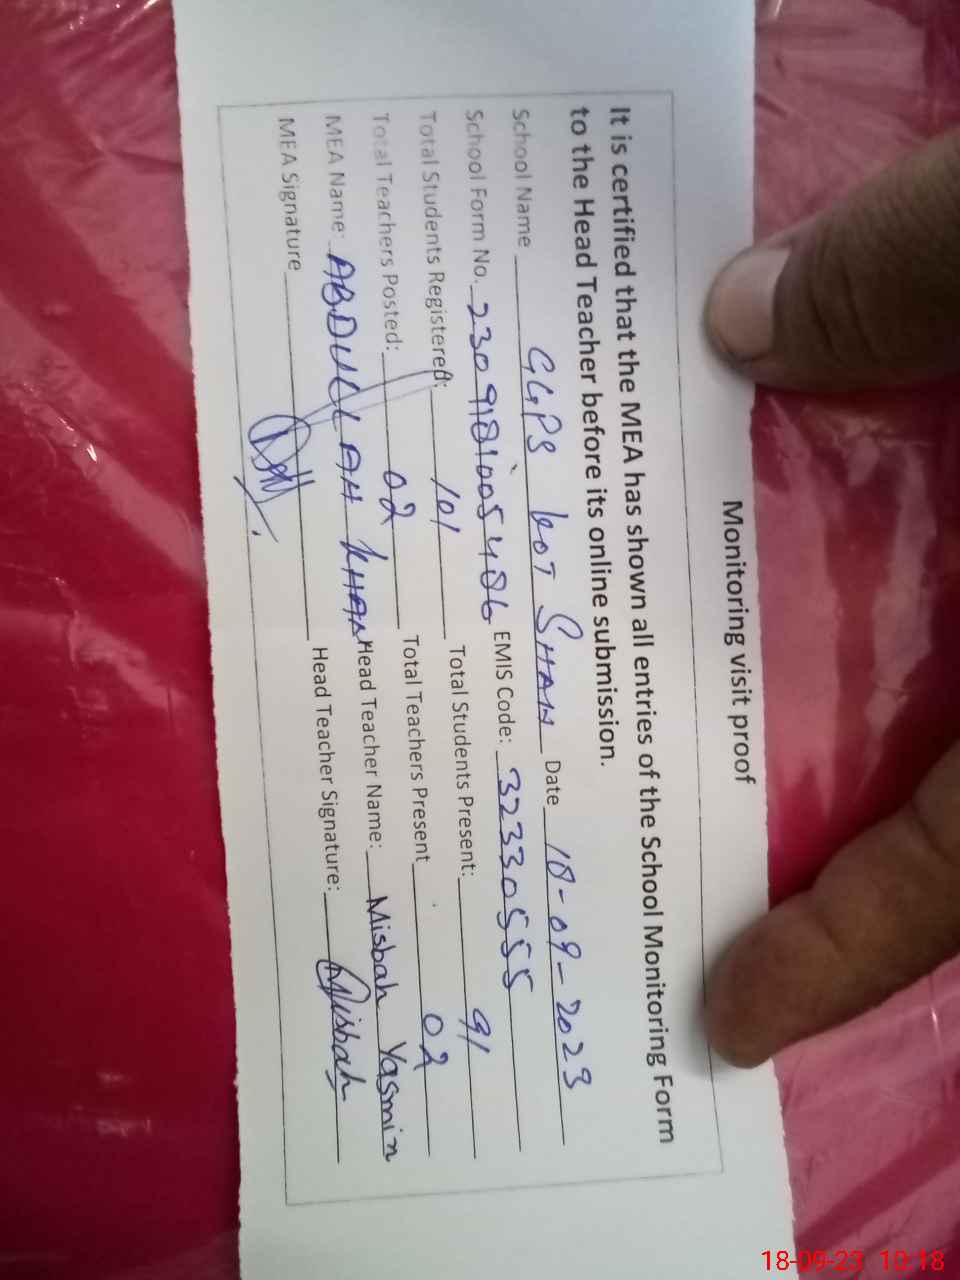 Monitoring visit proof
It is certified that the MEA has shown all entries of the School Monitoring Form
to the Head Teacher before its online submission.
School Name GGPS KOT SHAN Date 18-09-2023
School Form No. 2309181005486 EMIS Code: 32330555
Total Students Registered: 101 Total Students Present: 91
Total Teachers Posted: 02 Total Teachers Present 02
MEA Name: ABDULLAH KHAN Head Teacher Name: Misbah Yasmin
MEA Signature Head Teacher Signature: Misbah
18-09-23 10:18